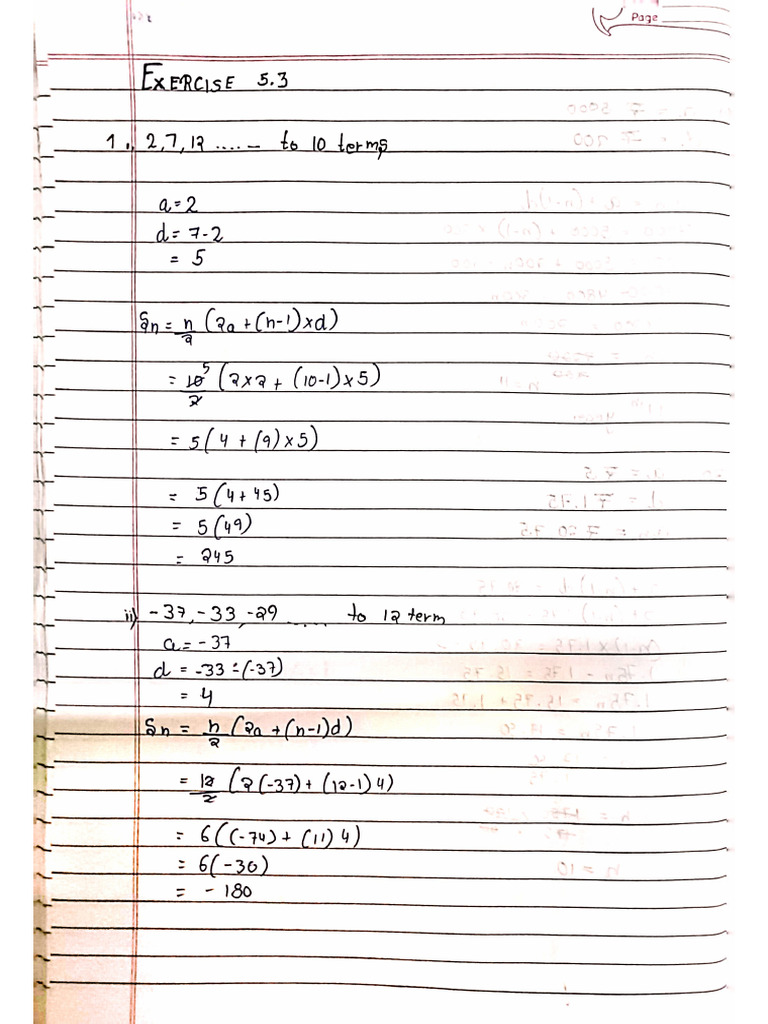 Page
EXERCISE 5.3
1. 2,7,12 ....– to 10 terms
a=2
d=7-2
= 5
Sn = n/2 (2a+(n-1)xd)
= 10/2 5 (2x2+ (10-1)x5)
= 5(4+(9)x5)
= 5(4+45)
= 5(49)
= 245
ii) -37,-33,-29 ...... to 12 term
a=-37
d = -33-(-37)
= 4
Sn = n/2 (2a+(n-1)d)
= 12/2 (2(-37)+(12-1)4)
= 6((-74)+(11)4)
= 6(-30)
= -180